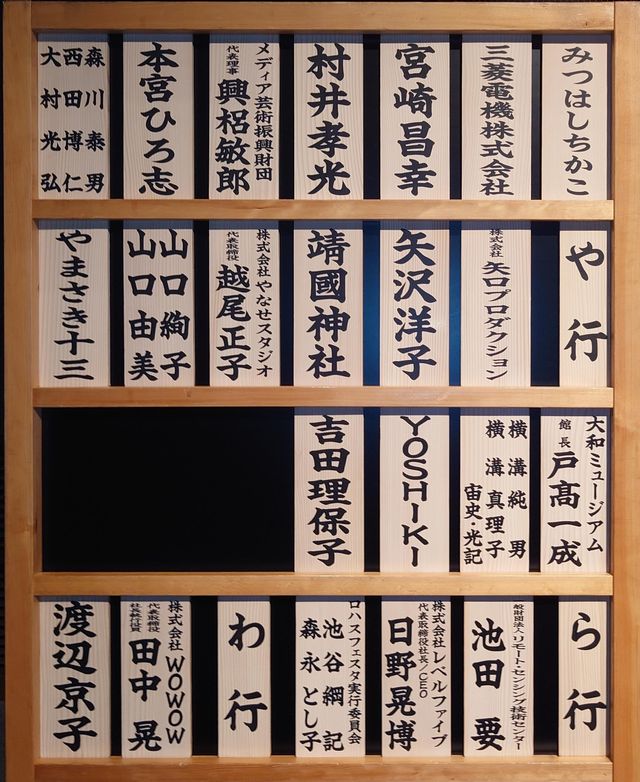 みつはしちかこ
三菱電機株式会社
宮崎昌幸
村井孝光
メディア芸術振興財団
代表理事
興梠敏郎
本宮ひろ志
森川泰男
西田博仁
大村光弘
や行
株式会社
矢口プロダクション
矢沢洋子
靖國神社
株式会社やなせスタジオ
代表取締役
越尾正子
山口絢子
山口由美
やまさき十三
大和ミュージアム
館長
戸髙一成
横溝純男
横溝真理子
宙史・光記
YOSHIKI
吉田理保子
ら行
一般財団法人リモート・センシング技術センター
池田要
株式会社レベルファイブ
代表取締役社長/CEO
日野晃博
ロハスフェスタ実行委員会
池谷綱記
森永とし子
わ行
株式会社WOWOW
代表取締役
社長執行役員
田中晃
渡辺京子